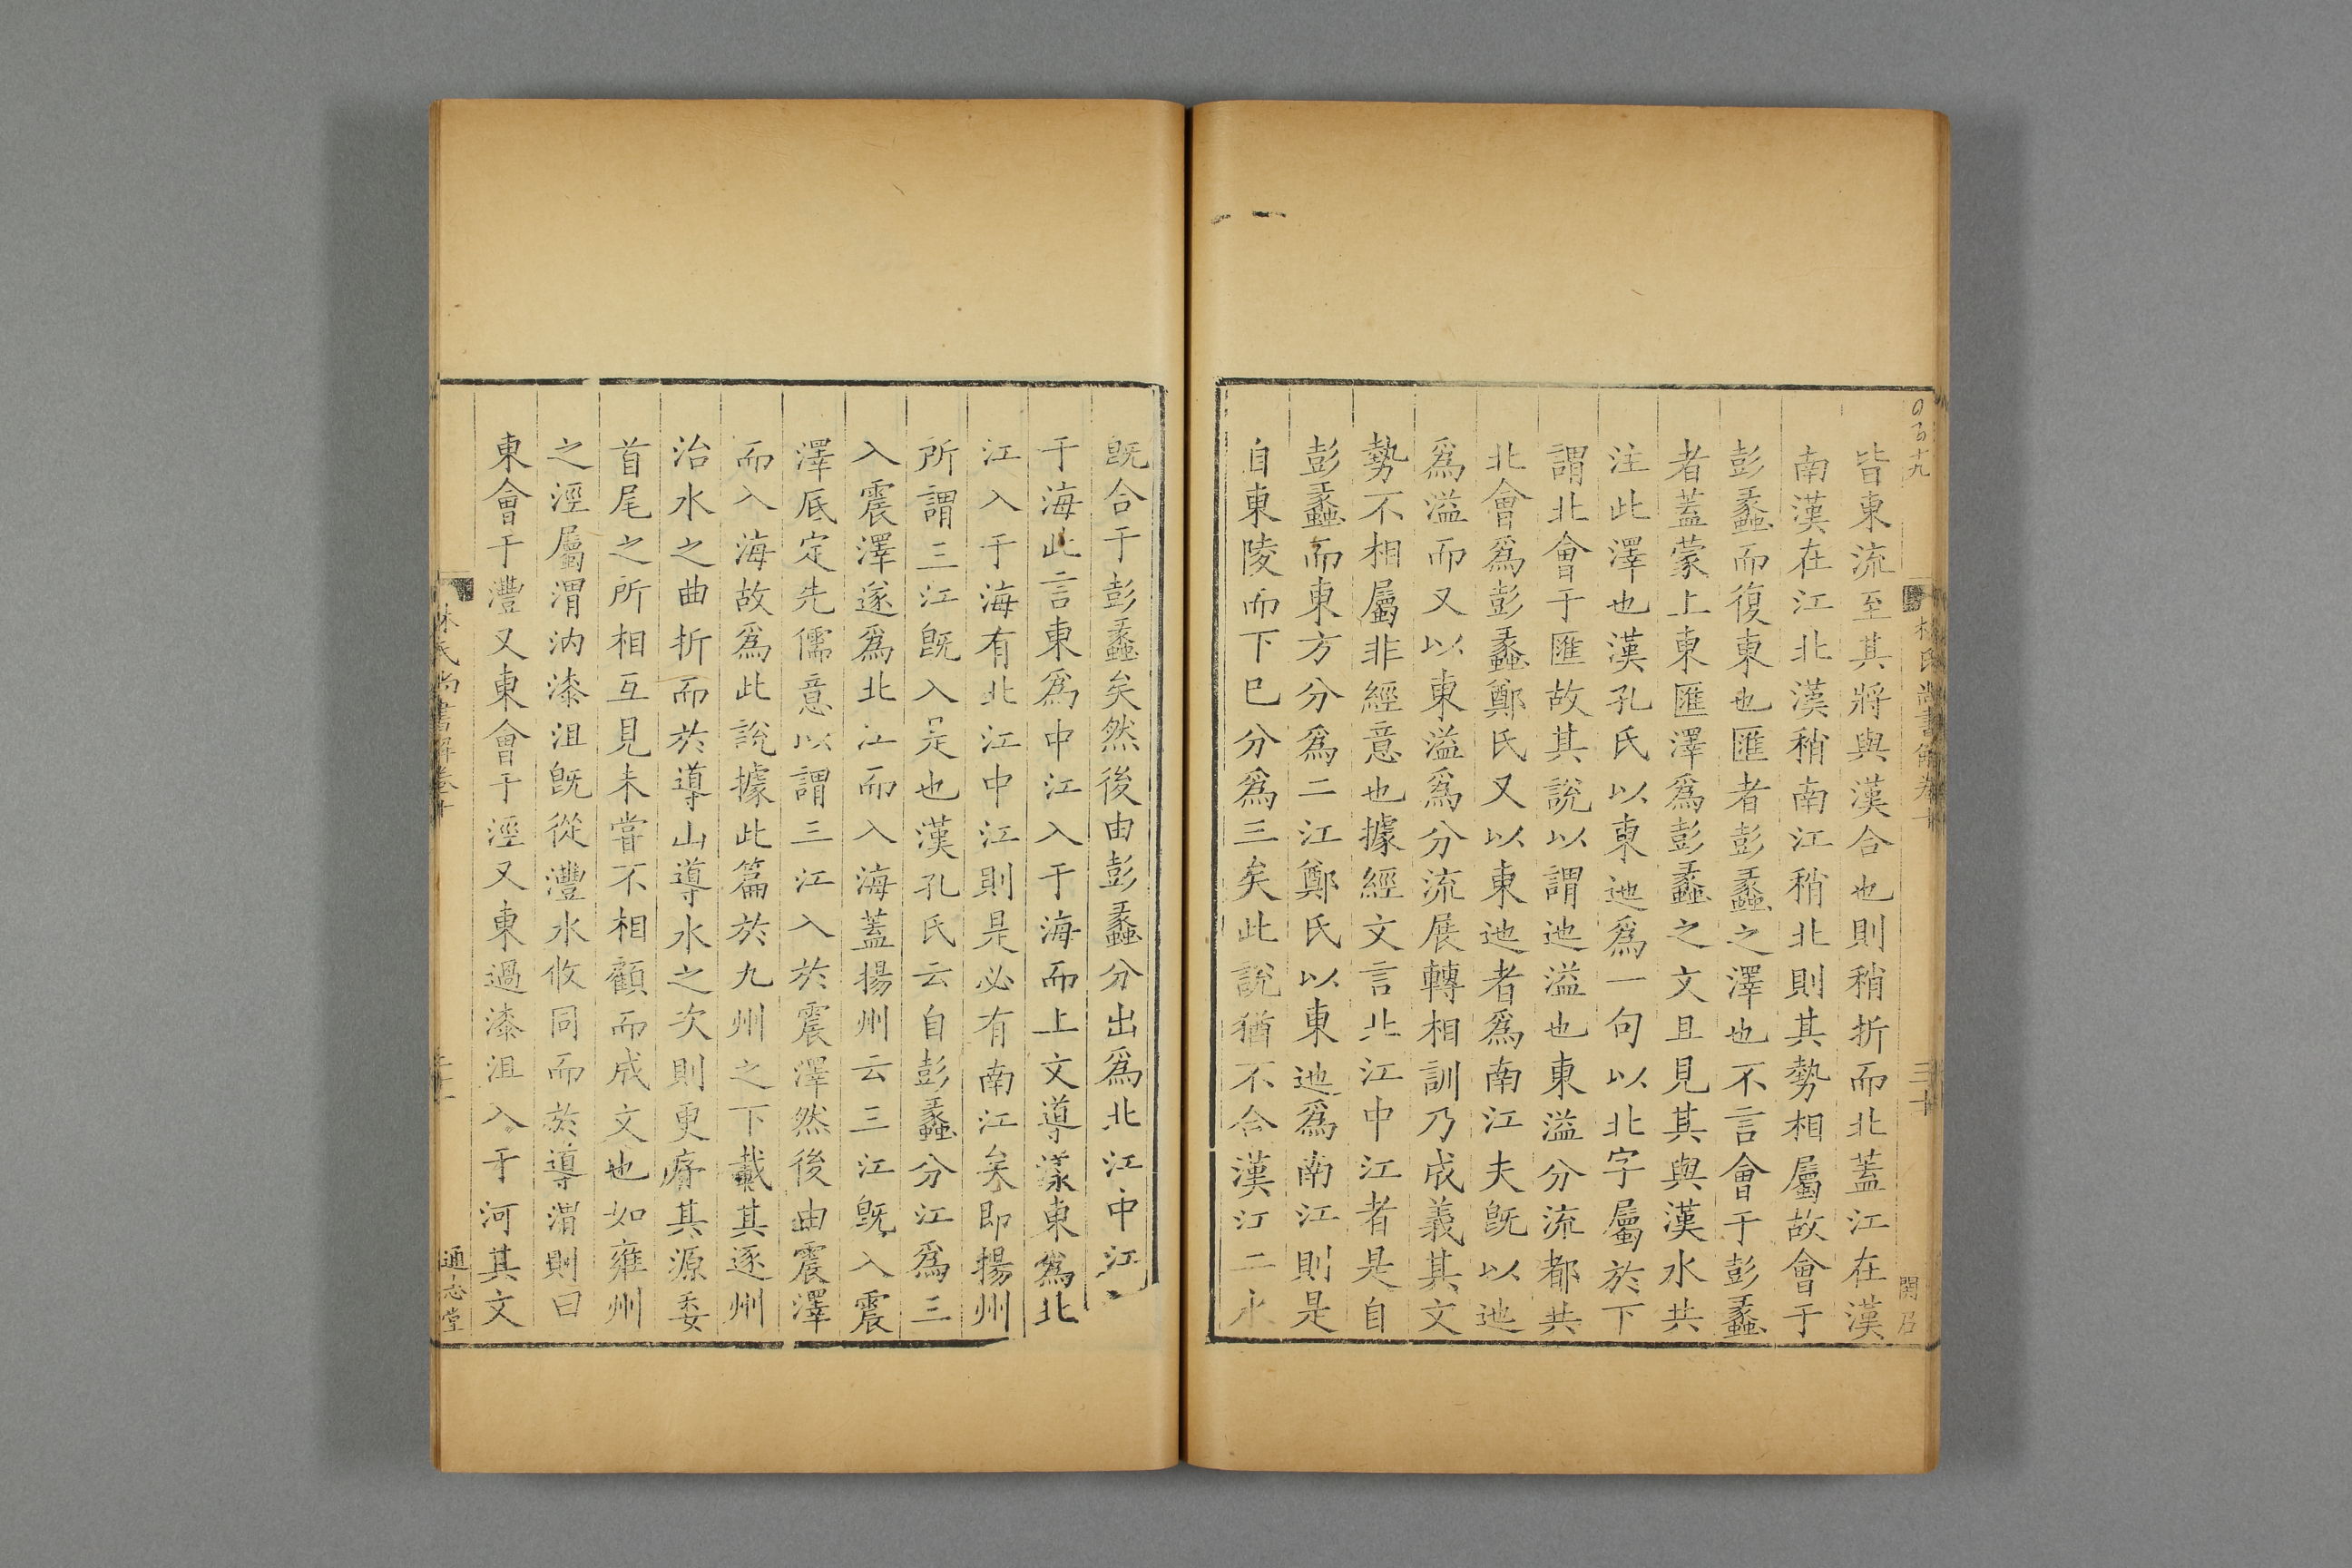 林氏尚書解卷十
三十
皆東流至其將與漢合也則稍折而北蓋江在漢
南漢在江北漢稍南江稍北則其勢相屬故會于
彭蠡而復東也匯者彭蠡之澤也不言會于彭蠡
者蓋蒙上東匯澤爲彭蠡之文且見其與漢水共
注此澤也漢孔氏以東迆爲一句以北字屬於下
謂北會于匯故其說以謂迆溢也東溢分流都共
北會爲彭蠡鄭氏又以東迆者爲南江夫旣以迆
爲溢而又以東溢爲分流展轉相訓乃成義其文
勢不相屬非經意也據經文言北江中江者是自
彭蠡而東方分爲二江鄭氏以東迆爲南江則是
自東陵而下巳分爲三矣此說猶不合漢江二水
旣合于彭蠡矣然後由彭蠡分出爲北江中江入
于海此言東爲中江入于海而上文導漾東爲北
江入于海有北江中江則是必有南江矣即揚州
所謂三江旣入是也漢孔氏云自彭蠡分江爲三
入震澤遂爲北江而入海蓋揚州云三江旣入震
澤底定先儒意以謂三江入於震澤然後由震澤
而入海故爲此說據此篇於九州之下載其逐州
治水之曲折而於導山導水之次則更疏其源委
首尾之所相互見未嘗不相顧而成文也如雍州
之涇屬渭汭漆沮旣從灃水攸同而於導渭則曰
東會于灃又東會于涇又東過漆沮入于河其文
林氏尚書解卷十
通志堂